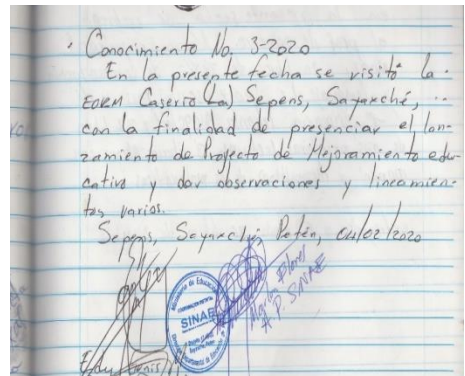 · Conocimiento No. 3-2020
En la presente fecha se visitó la
EORM Caserío (La) Sepens, Sayaxché,
con la finalidad de presenciar el lan-
zamiento de Proyecto de Mejoramiento edu-
cativo y dar observaciones y lineamien-
tos varios.
Sepens, Sayaxché, Petén, 04/02/2020
Ministerio de Educación
SINAE
A.P. SINAE